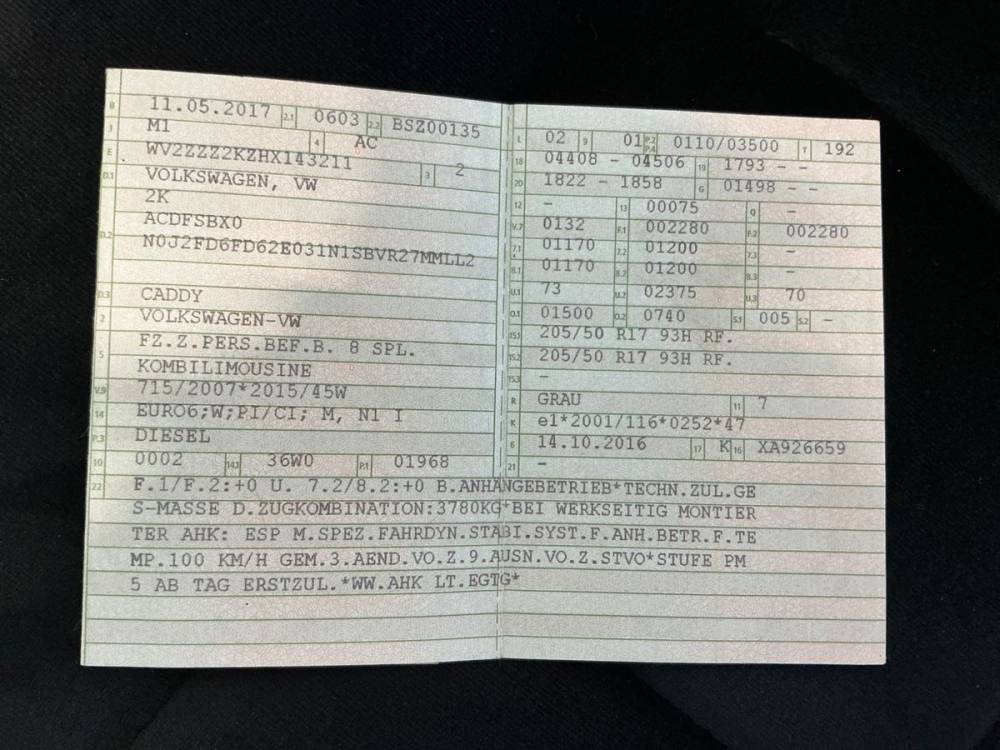 B 11.05.2017 2.1 0603 2.2 BSZ00135
J M1 4 AC
E WV2ZZZ2KZHX143211 3 2
D.1 VOLKSWAGEN, VW
2K
D.2 ACDFSBX0
N0J2FD6FD62E031N1SBVR27MMLL2
D.3 CADDY
2 VOLKSWAGEN-VW
5 FZ.Z.PERS.BEF.B. 8 SPL.
KOMBILIMOUSINE
V.9 715/2007*2015/45W
14 EURO6;W;PI/CI; M, N1 I
P.3 DIESEL
10 0002 14.1 36W0 P.1 01968
L 02 9 01 P.2 P.4 0110/03500 T 192
18 04408 - 04506 19 1793 - -
20 1822 - 1858 G 01498 - -
12 - 13 00075 Q -
V.7 0132 F.1 002280 F.2 002280
7.1 01170 7.2 01200 7.3 -
8.1 01170 8.2 01200 8.3 -
U.1 73 U.2 02375 U.3 70
O.1 01500 O.2 0740 S.1 005 S.2 -
15.1 205/50 R17 93H RF.
15.2 205/50 R17 93H RF.
15.3 -
R GRAU 11 7
K e1*2001/116*0252*47
6 14.10.2016 17 K 16 XA926659
21 -
22 F.1/F.2:+0 U. 7.2/8.2:+0 B.ANHÄNGEBETRIEB*TECHN.ZUL.GE
S-MASSE D.ZUGKOMBINATION:3780KG*BEI WERKSEITIG MONTIER
TER AHK: ESP M.SPEZ.FAHRDYN.STABI.SYST.F.ANH.BETR.F.TE
MP.100 KM/H GEM.3.AEND.VO.Z.9.AUSN.VO.Z.STVO*STUFE PM
5 AB TAG ERSTZUL.*WW.AHK LT.EGTG*